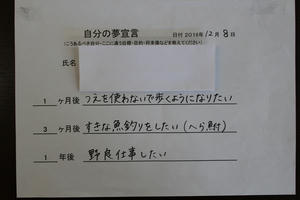 自分の夢宣言 日付 2018年12月8日
(こうあるべき自分・ここに通う目標・目的・将来像などを教えてください)
氏名
1 ヶ月後 つえを使わないで歩くようになりたい
3 ヶ月後 すきな魚釣りをしたい(へら鮒)
1 年後 野良仕事したい